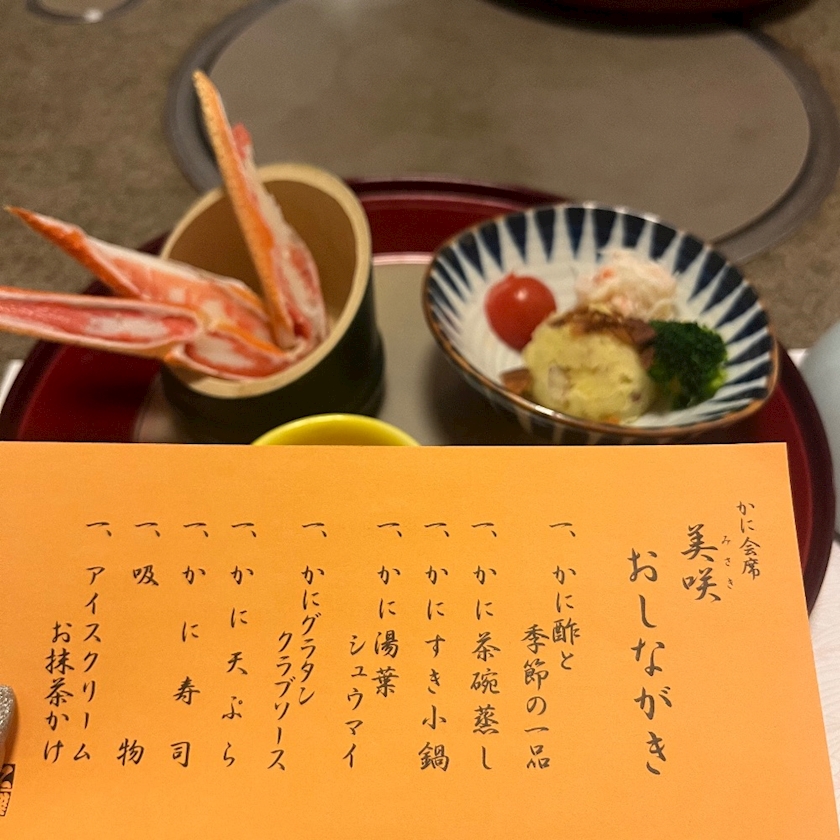 かに会席
美咲
みさき
おしながき
一、かに酢と
季節の一品
一、かに茶碗蒸し
一、かにすき小鍋
一、かに湯葉
シュウマイ
一、かにグラタン
クラブソース
一、かに天ぷら
一、かに寿司
一、吸物
一、アイスクリーム
お抹茶かけ